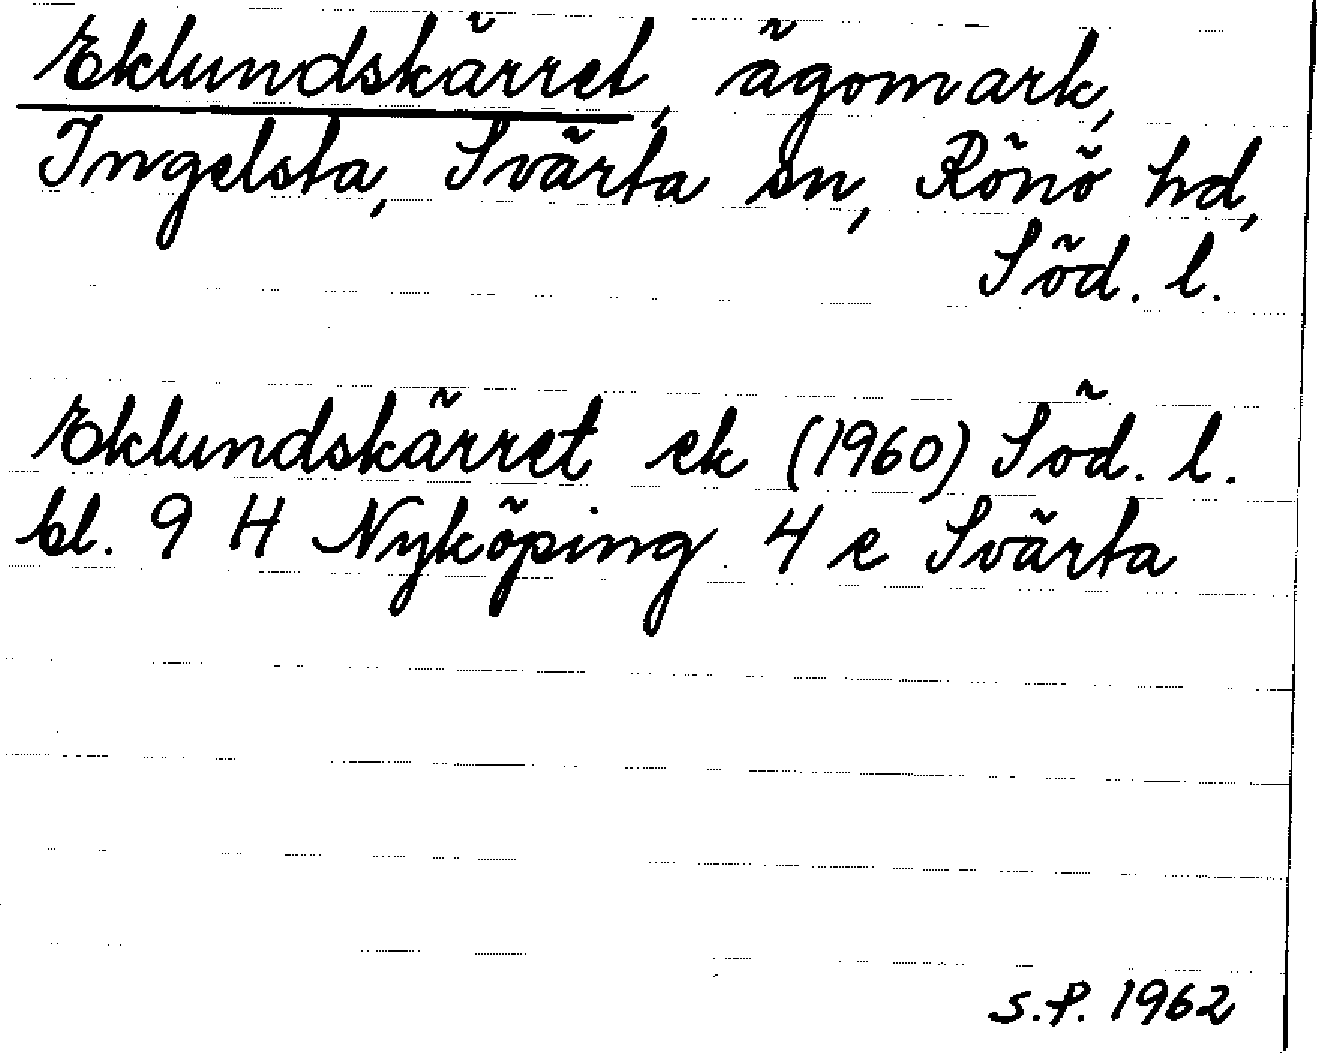 Eklundskärret, ägomark,
Ingelsta, Svärta sn, Rönö hd,
Söd. l.
Eklundskärret ek (1960) Söd. l.
bl. 9 H Nyköping 4 e Svärta
S.P. 1962